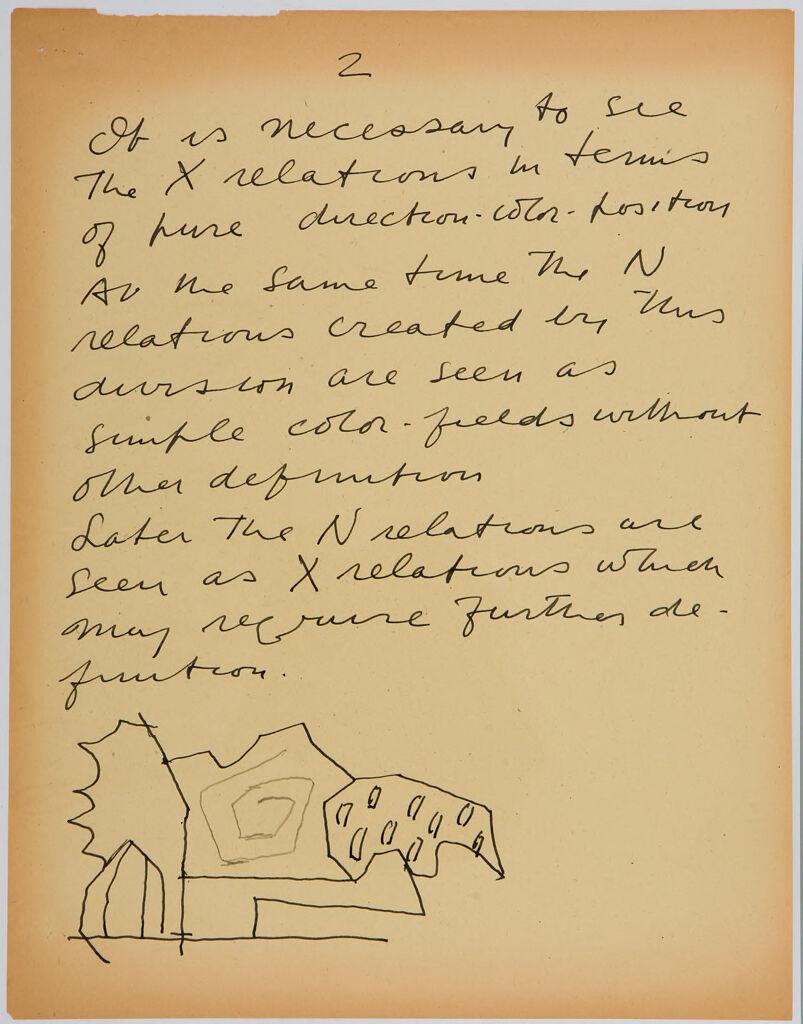 2
It is necessary to see
The X relations in terms
of pure direction-color-position
At the same time The N
relations created by This
division are seen as
simple color-fields without
other definition
Later The N relations are
seen as X relations which
may require further de-
finition.